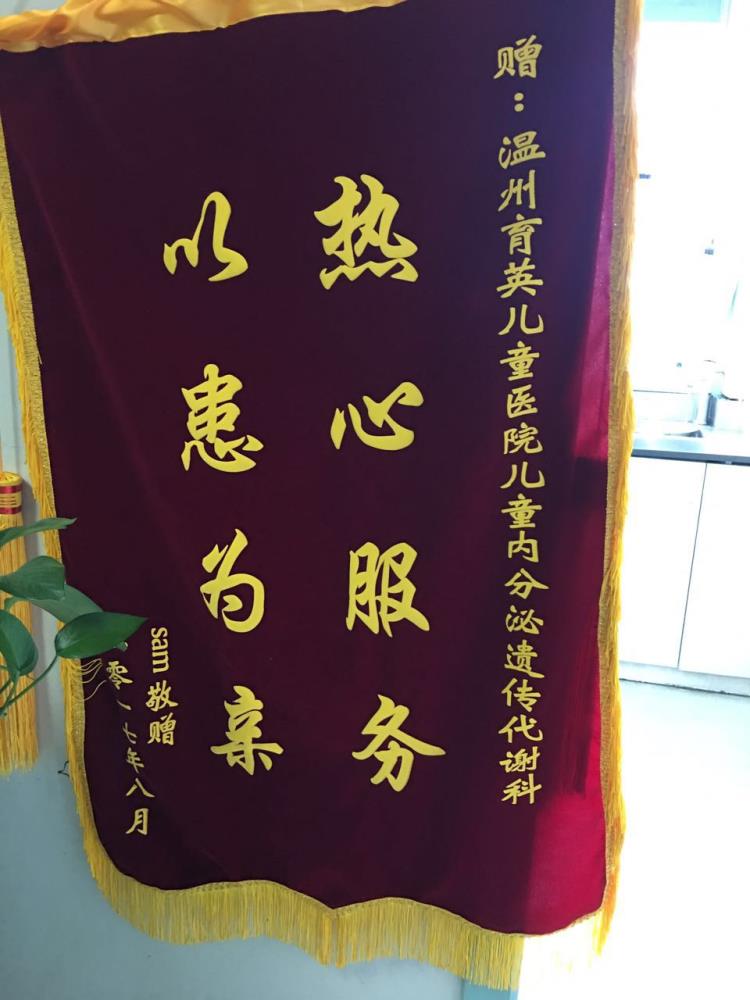 赠：温州育英儿童医院儿童内分泌遗传代谢科
热心服务
以患为亲
sam敬赠
零一七年八月